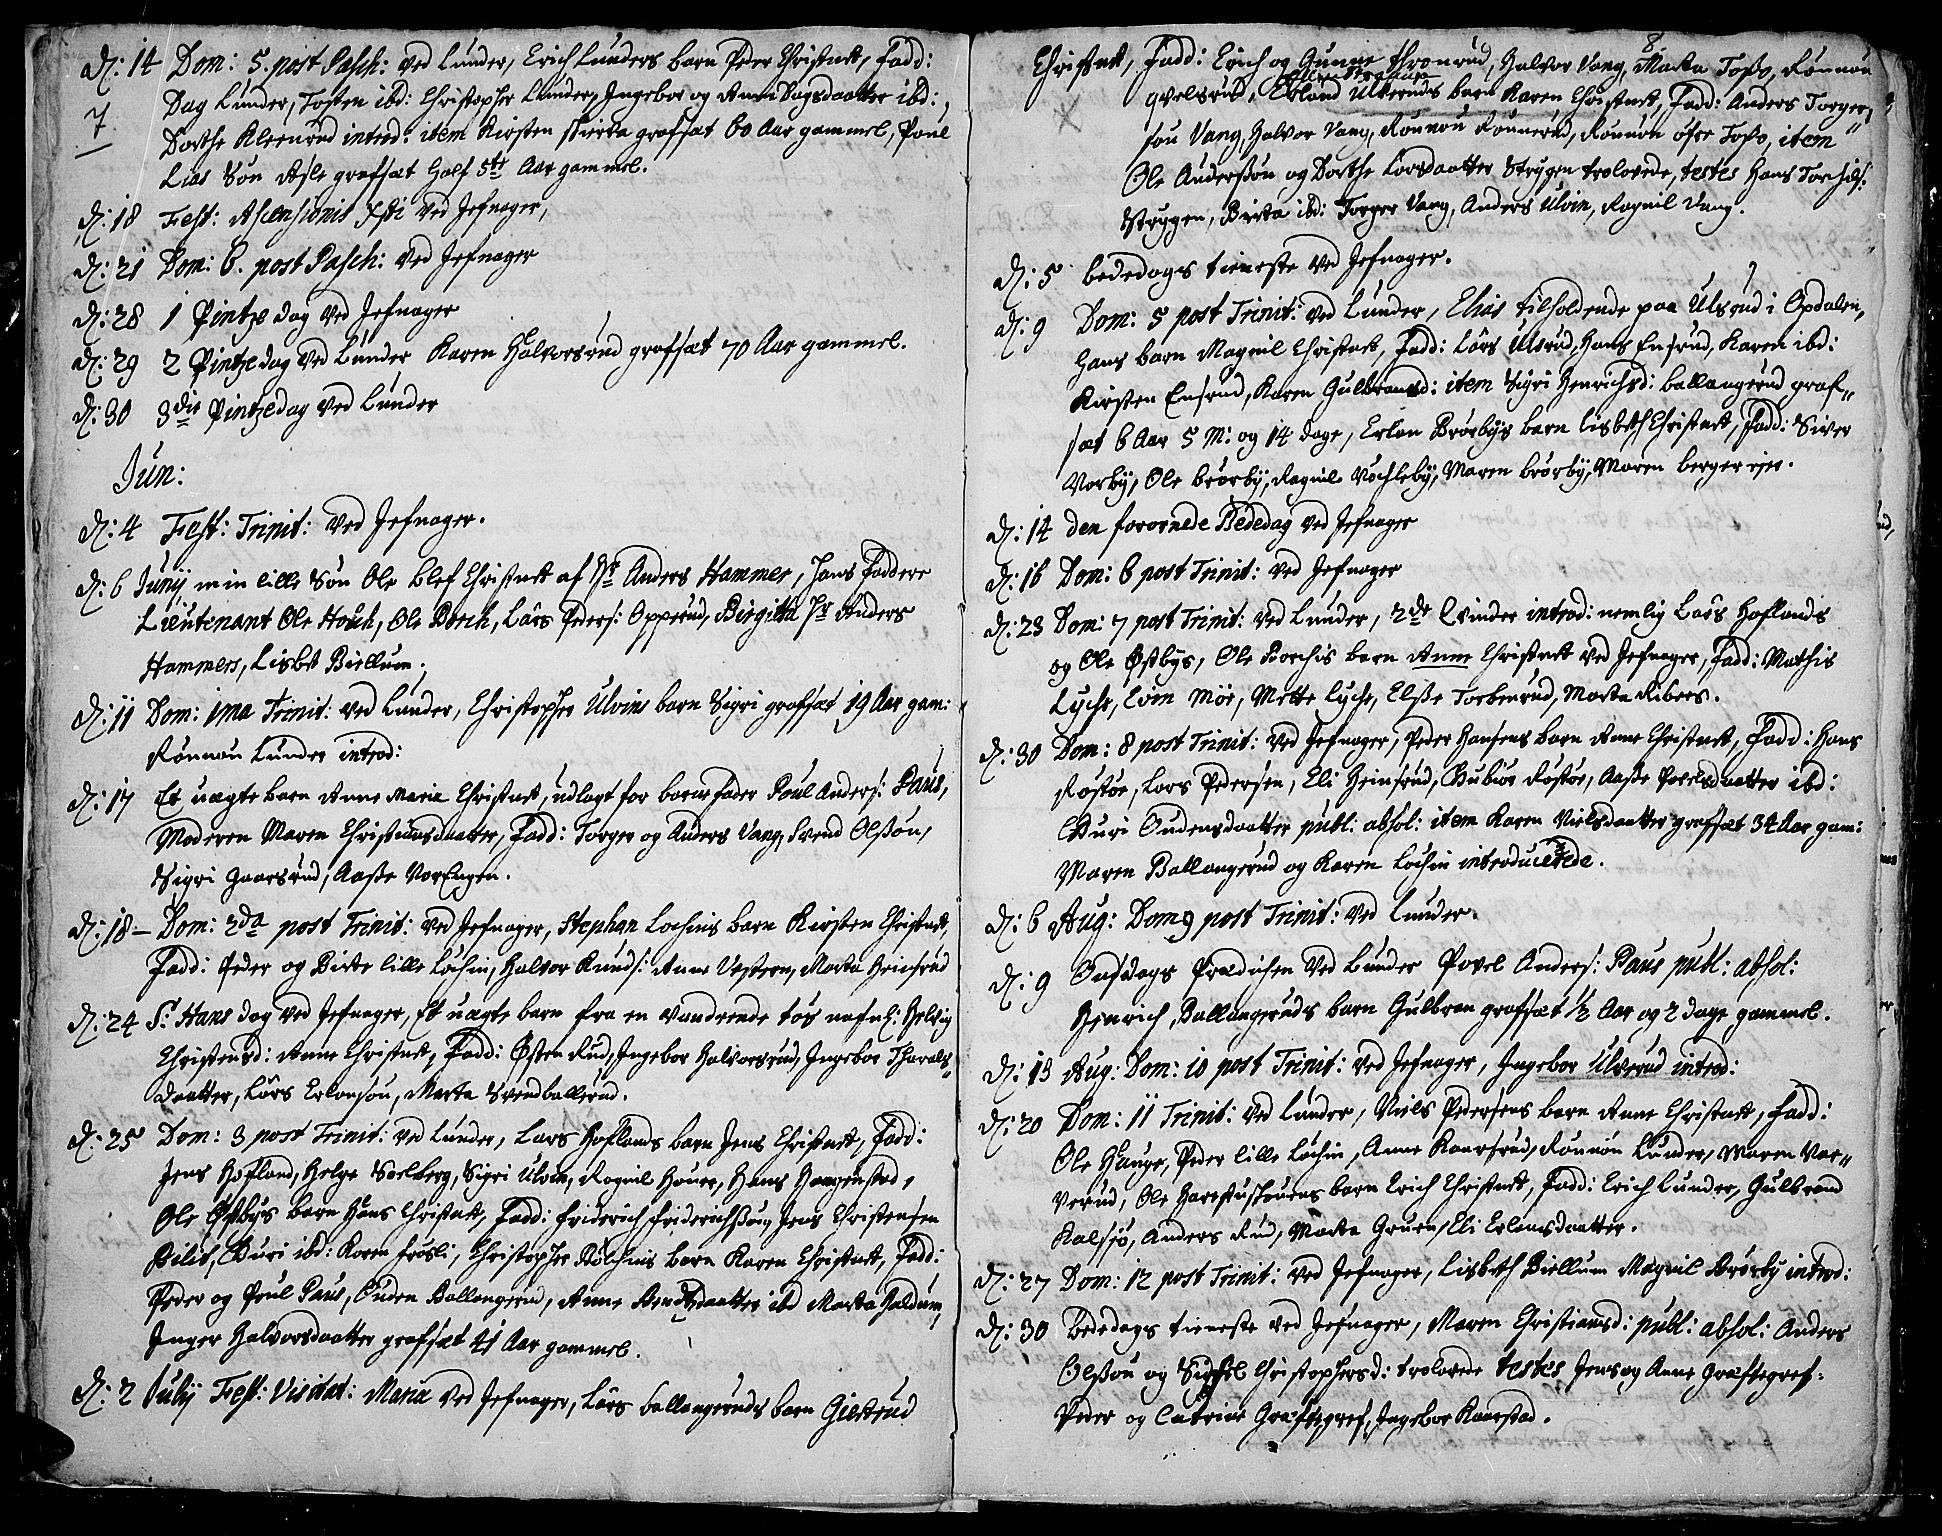 D: 14 Dom: 5. post Pasch: ved Lunder, Erich Lunders barn Peder Christnet, Fadd:
7 Dag Lunder, Tosten ibd: Christopher Lunder, Ingebor og Anne Dagsdaatter ibd:,
Dorthe Kleenrud introd: item Kirsten Stierta grafsat 60 Aar gammel, Poul
Lias Søn Asle grafsat half 5te Aar gammel.
D: 18 Fest: Ascensionis Xsti ved Jefnager,
D: 21 Dom: 6. post Pasch: ved Jefnager
D: 28 1 Pintze dag ved Jefnager
D: 29 2 Pintze dag ved Lunder Karen Halvorsrud grafsat 70 Aar gammel.
D: 30 3die Pintzedag ved Lunder
Jun:
D: 4 Fest: Trinit: ved Jefnager.
D: 6 Junij min lille Søn Ole blef Christnet af Hr Anders Hammer, hans Faddere
Lieutenant Ole Houh, Ole Borch, Lars Peders: Opperud, Birgitha Hr Anders
Hammers, Lisbet Biellum.
D: 11 Dom: 1ma Trinit: ved Lunder, Christopher Ulvins barn Sigri grafsat 19 Aar gam:
Rønnou Lunder introd:
D: 17 Et uægte barn Anne Maria Christnet, udlagt for barnefader Poul Anders: Paus,
Moderen Maren Christiansdaatter, Fadd: Torger og Anders Vang, Svend Olssøn,
Sigri Gaarsrud, Aasse Vorengen.
D: 18 – Dom: 2da post Trinit: ved Jefnager, Stephan Lochins barn Kirsten Christnet,
Fadd: Peder og Birte lille Lochin, Halvor Knuds: Anne Vestern, Marta Heiersrud
D: 24 S: Hans dag ved Jefnager, Et uægte barn fra en vandrende tøs nafnl: Helvig
Christensd: Anne Christnet, Fadd: Østen Rud, Ingebor Halvorsrud, Ingebor Tharals-
daatter, Lars Erlandsøn, Marta Svendballerud.
D: 25 Dom: 3 post Trinit: ved Lunder, Lars Hoflands barn Jens Christnet, Fadd:
Jens Hofland, Helge Soelberg, Sigri Ulvin, Ragnil Houer, Hans Haagenstad,
Ole Østbys barn Hans Christnet, Fadd: Friderich Friderichssøn, Jens Christensen
Bilit, Guri ibd: Karen Frøsli, Christopher Rolchins barn Karen Christnet, Fadd:
Peder og Poul Paus, Ouden Ballangerud, Anne Bendtzdaatter ibd Marta Haldum,
Inger Halvorsdaatter grafsat 41 Aar gammel.
D: 2 Julij Fest: Visitat: Maria ved Jefnager, Lars Ballangeruds barn Giertrud
8
Christnet, Fadd: Erich og Gunne Thronrud, Halvor Vang, Marta Tosso, Rønnou
qvelsrud, Erland Ulveruds barn Karen Christnet, Fadd: Anders Torger-
søn Vang, Halvor Vang, Rønnou Rønnerud, Rønnou øfre Tosso, item
Ole Anderssøn og Dorthe Larsdaatter Strygen trolovede, testes Hans Torchils:
Strygen, Birta ibd: Torger Vang, Anders Ulvin, Ragnil Vang.
D: 5 bededags tieneste ved Jefnager.
D: 9 Dom: 5 post Trinit: ved Lunder, Elias tilholdende paa Ulsrud i Opdalen,
hans barn Magnil Christnet, Fadd: Lars Ulsrud, Hans Ensrud, Karen ibd:
Kirsten Ensrud, Karen Gulbransd: item Sigri Henrichsd: Ballangerud graf-
sat 6 Aar 5 M: og 14 dage, Erlan Brørbys barn Lisbeth Christnet, Fadd: Siver
Vorby, Ole Brørby, Ragnil Vochleby, Maren Brørby, Maren berger eje.
D: 14 den forornede Bededag ved Jefnager
D: 16 Dom: 6 post Trinit: ved Jefnager
D: 23 Dom: 7 post Trinit: ved Lunder, 2de Qvinder introd: nemlig Lars Hoflands
og Ole Østbys, Ole Borchis barn Anne Christnet ved Jefnager, Fadd: Mathis
Lyche, Even Moe, Mette Lyche, Elsse Torbenrud, Marta Ribers.
D: 30 Dom: 8 post Trinit: ved Jefnager, Peder Hansens barn Anne Christnet, Fadd: Hans
Røstøe, Lars Pedersen, Eli Heiersrud, Gubiør Røstøe, Aasse Povelsdaatter ibd:
Guri Oudensdaatter publ: absol: item Karen Nielsdaatter grafsat 34 Aar gam:
Maren Ballangerud og Karen Lochin introducerede.
D: 6 Aug: Dom 9 post Trinit: ved Lunder.
D: 9 Onsdags Prædichen ved Lunder Povel Anders: Paus publ: absol:
Henrich Ballangeruds barn Gulbran grafsat ½ Aar og 2 dage gammel.
D: 13 Aug: Dom: 10 post Trinit: ved Jefnager, Ingebor Ulverud introd:
D: 20 Dom: 11 Trinit: ved Lunder, Niels Pedersens barn Anne Christnet, Fadd:
Ole Hauge, Peder lille Lochin, Anne Kaarsrud, Rønnou Lunder, Maren Vor-
verud, Ole Harestuskouens barn Erich Christnet, Fadd: Erich Lunder, Gulbrand
Kalsjø, Anders Rud, Marta Gruen, Eli Erlansdaatter.
D: 27 Dom: 12 post Trinit: ved Jefnager, Lisbeth Biellum Magnil Brørby introd:
D: 30 Bededags tieneste ved Jefnager, Maren Christiansd: publ: absol: Anders
Olssøn og Sissel Christophersd: trolovede testes Jens og Anne Græftegref:
Peder og Catrine Græftegref, Ingebor Kaarstad.